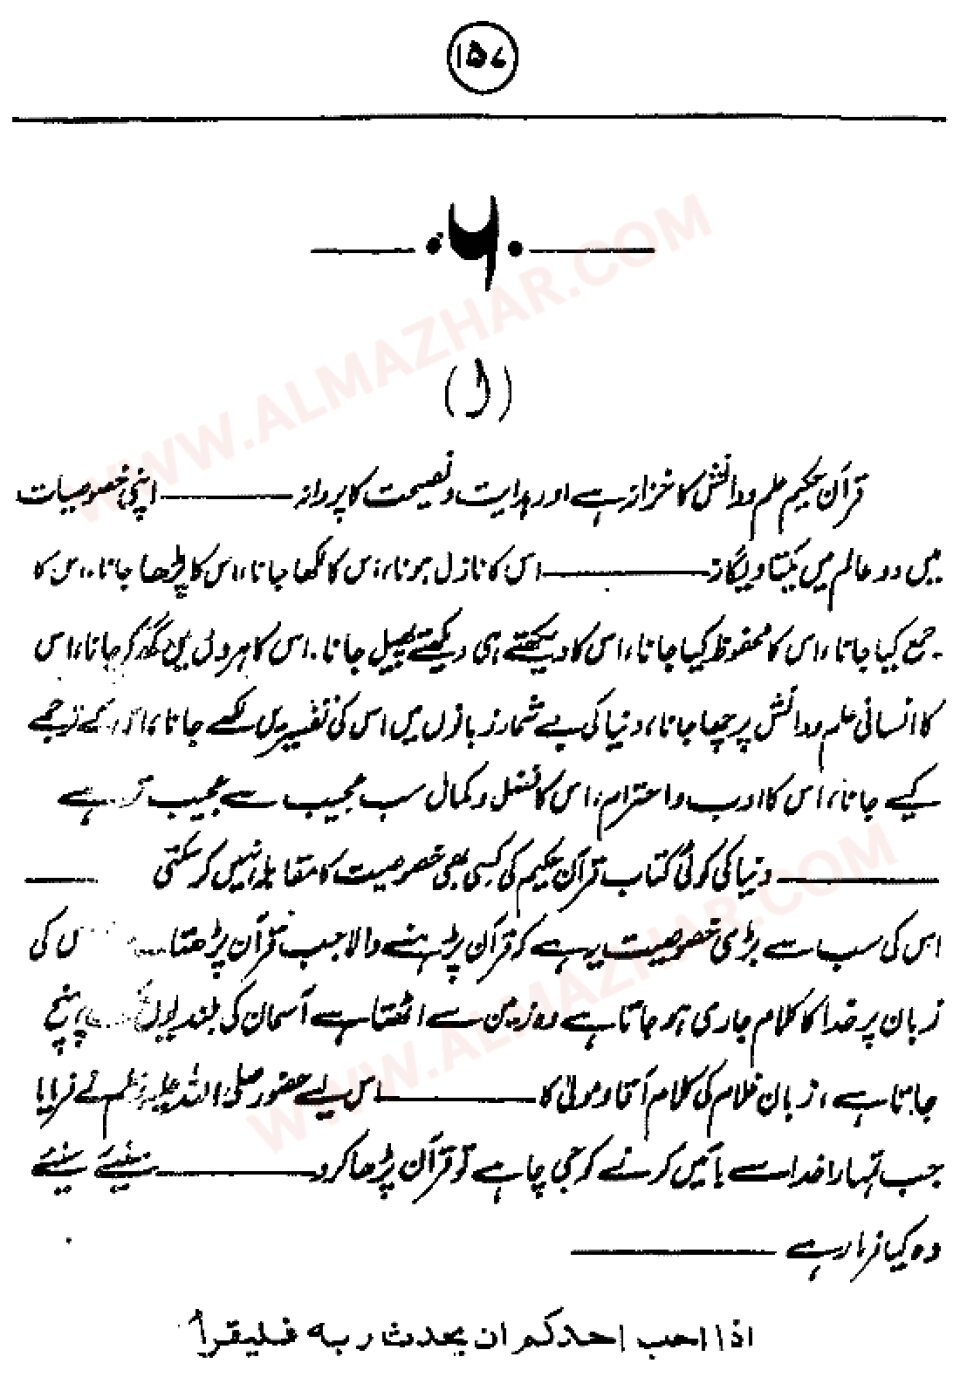 ۱۵۷
۶
(۱)
قرآن حکیم علم و دانش کا خزانہ ہے اور ہدایت و نصیحت کا پروانہ ——— اپنی خصوصیات
میں دو عالم میں یکتا و یگانہ ——— اس کا نازل ہونا، اس کا لکھا جانا، اس کا پڑھا جانا، اس کا
جمع کیا جانا، اس کا محفوظ کیا جانا، اس کا دیکھتے ہی دیکھتے پھیل جانا، اس کا ہر دل میں گھر کر جانا، اس
کا انسانی علم و دانش پر چھا جانا، دنیا کی بے شمار زبانوں میں اس کی تفسیریں لکھے جانا، ترجمے
کیے جانا، اس کا ادب و احترام، اس کا فضل و کمال سب عجیب سے عجیب تر ہے
——— دنیا کی کوئی کتاب قرآن حکیم کی کسی بھی خصوصیت کا مقابلہ نہیں کر سکتی ———
اس کی سب سے بڑی خصوصیت یہ ہے کہ قرآن پڑھنے والا جب قرآن پڑھتا کی
زبان پر خدا کا کلام جاری ہو جاتا ہے وہ زمین سے اٹھتا ہے آسمان کی بلندیوں پہنچ
جاتا ہے، زبان غلام کی کلام آقا و مولیٰ کا ——— اس لیے حضور صلی اللہ علیہ وسلم نے فرمایا
جب تمہارا خدا سے باتیں کرنے کو جی چاہے تو قرآن پڑھا کرو ——— سنیے سنیے
وہ کیا فرما رہے ———
اذا احب احدکم ان یحدث ربه فلیقرا